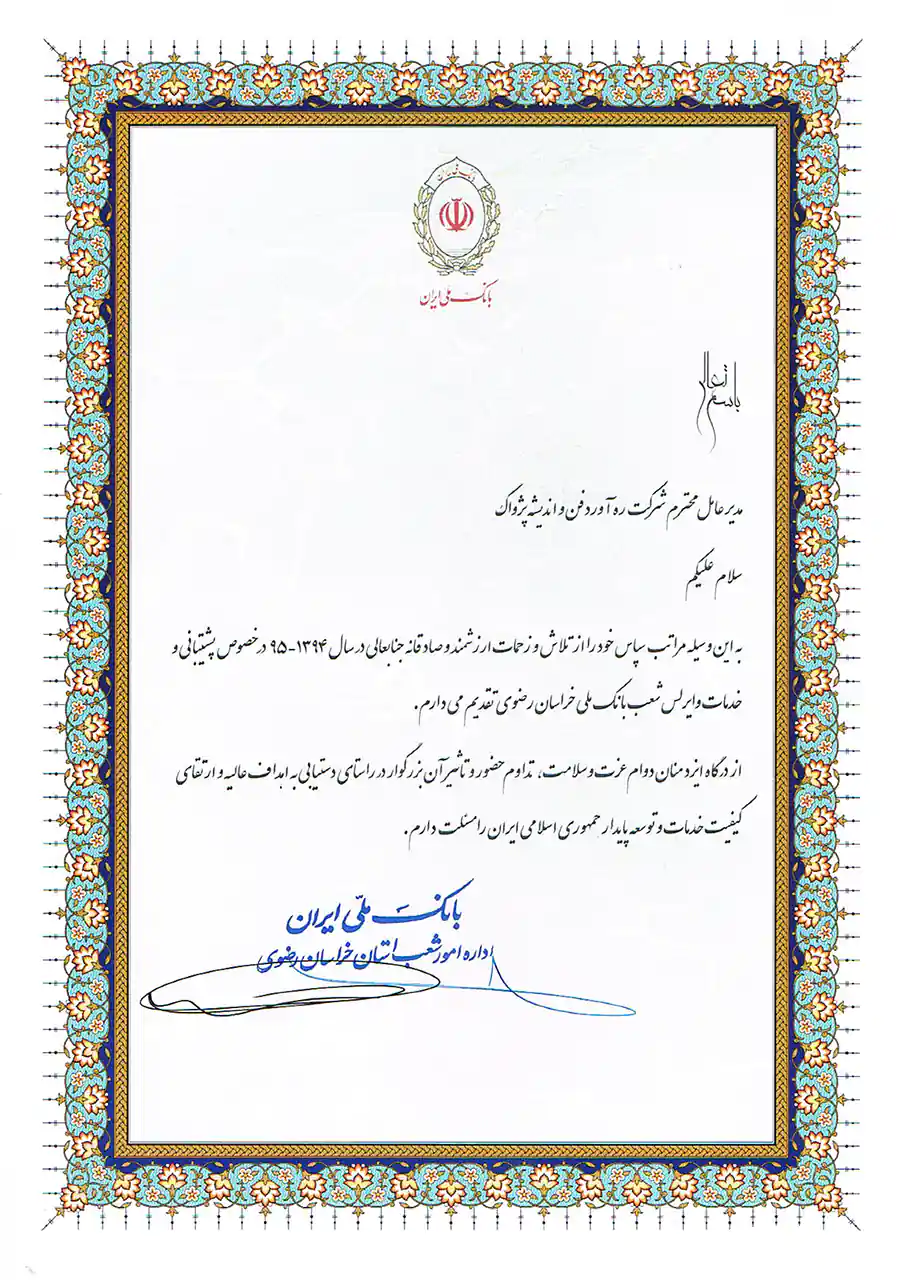 بانک ملی ایران
باسمه تعالی
مدیر عامل محترم شرکت ره آورد فن و اندیشه پژواک
سلام علیکم
به این وسیله مراتب سپاس خود را از تلاش و زحمات ارزشمند و صادقانه جنابعالی در سال ۱۳۹۴-۹۵ در خصوص پشتیبانی و
خدمات وایرلس شعب بانک ملی خراسان رضوی تقدیم می دارم.
از درگاه ایزد منان دوام عزت و سلامت، تداوم حضور و تاثیر آن بزرگوار در راستای دستیابی به اهداف عالیه و ارتقای
کیفیت خدمات و توسعه پایدار جمهوری اسلامی ایران را مسئلت دارم.
بانک ملّی ایران
اداره امور شعب استان خراسان رضوی